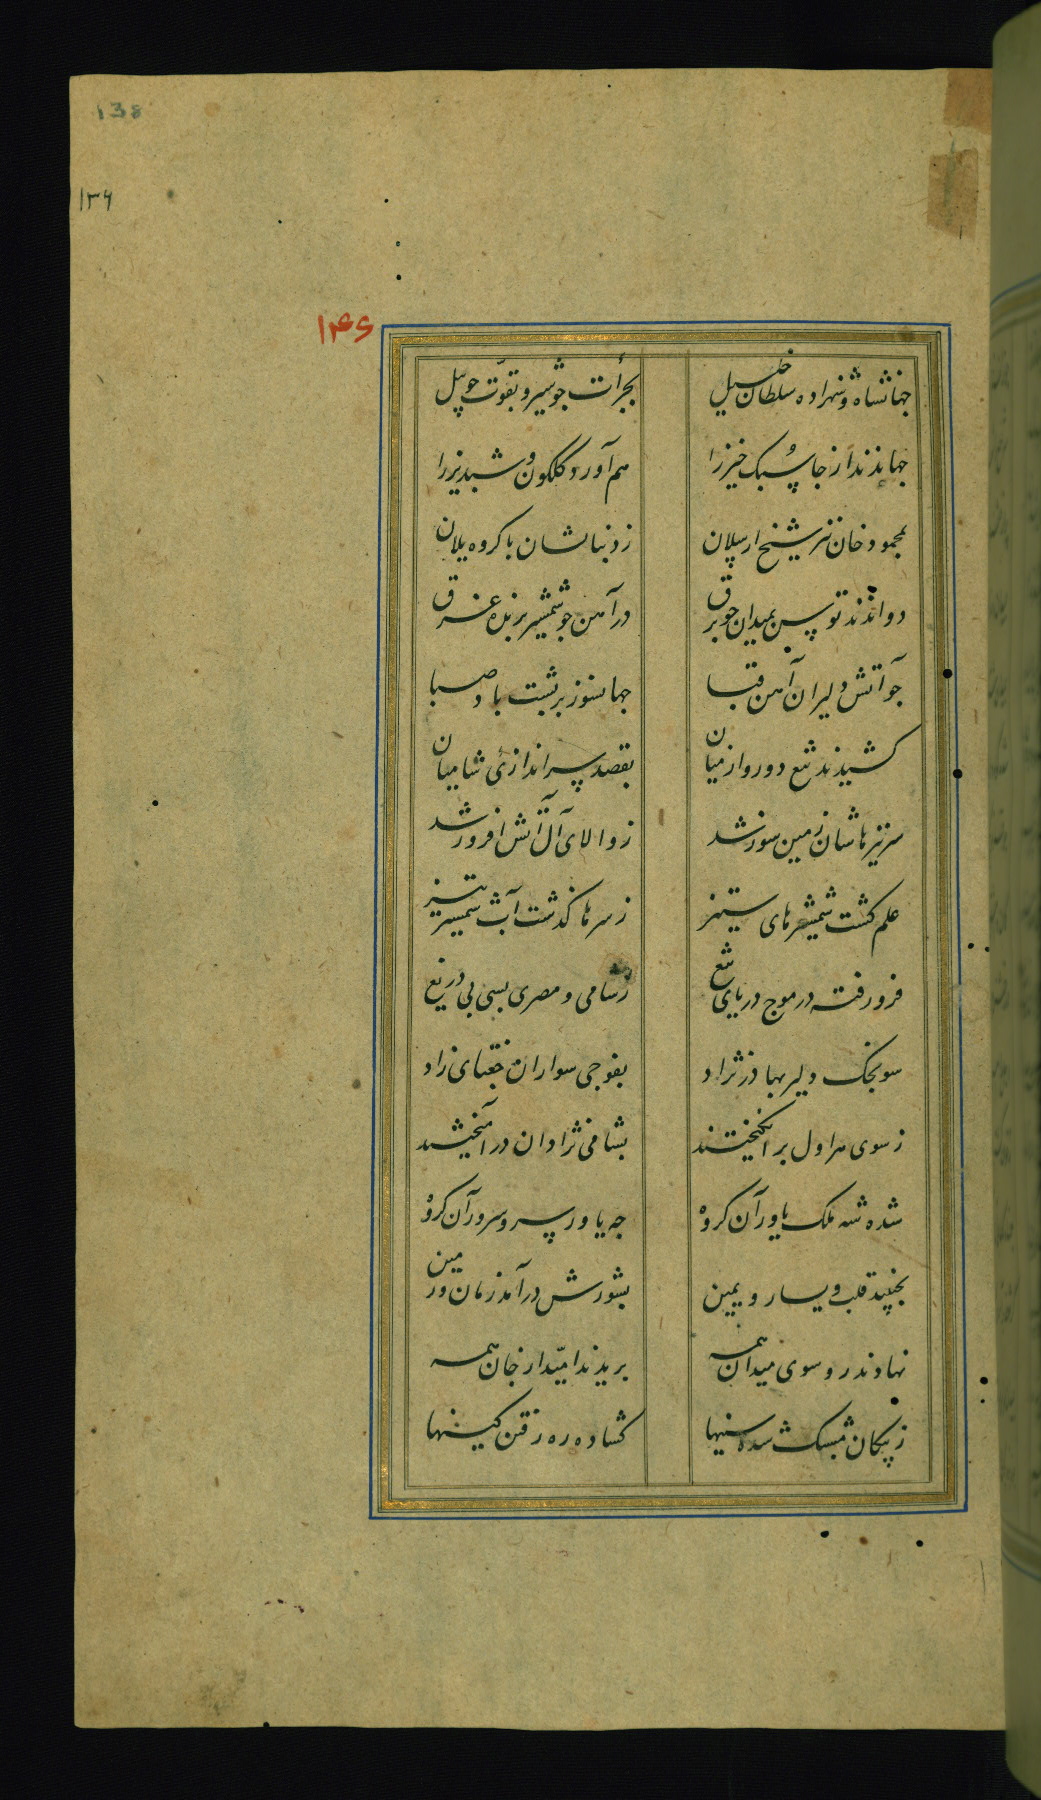 138
۱۳۶
۱۴۶
جهانشاه و شهزاده سلطان خلیل بجرأت جو شیر و بقوّت جو پیل
جهاندند از جا سبک خیز را هم آورد کلکون و شبدیز را
محمود خان نیز شیخ ارسلان ز دنبالشان با کروه یلان
دواندند توسن بمیدان جو برق در آهن جو شمشیر برنده غرق
جو آتش دلیران آهن قبا جهانسوز بر پشت باد صبا
کشیدند تیغ دو رو از میان بقصد سر اندازئ شامیان
سر نیزهاشان زمین سوز شد ز والای آل آتش افروز شد
علم کشت شمشیرهای ستیز ز سرها کذشت آب شمشیر تیز
فرو رفته در موج دریای تیغ ز شامی و مصری بسی بی دریغ
سونجک دلیر بهادر نژاد بفوجی سواران جغتای زاد
ز سوی هراول بر انکیختند بشامی نژادان در آمیختند
شده شه ملک یاور آن کروه جه یاور سر و سرور آن کروه
بجنبید قلب و یسار و یمین بشورش در آمد زمان و زمین
نهادند رو سوی میدان همه بریدند امّید از جان همه
ز پیکان مشبک شده سینها کشاده ره رفتن کینها